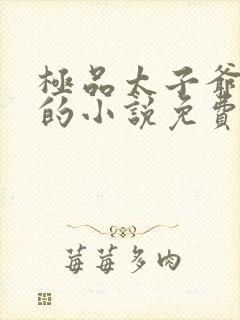 極品太子爺
的小說免費
莓莓多肉